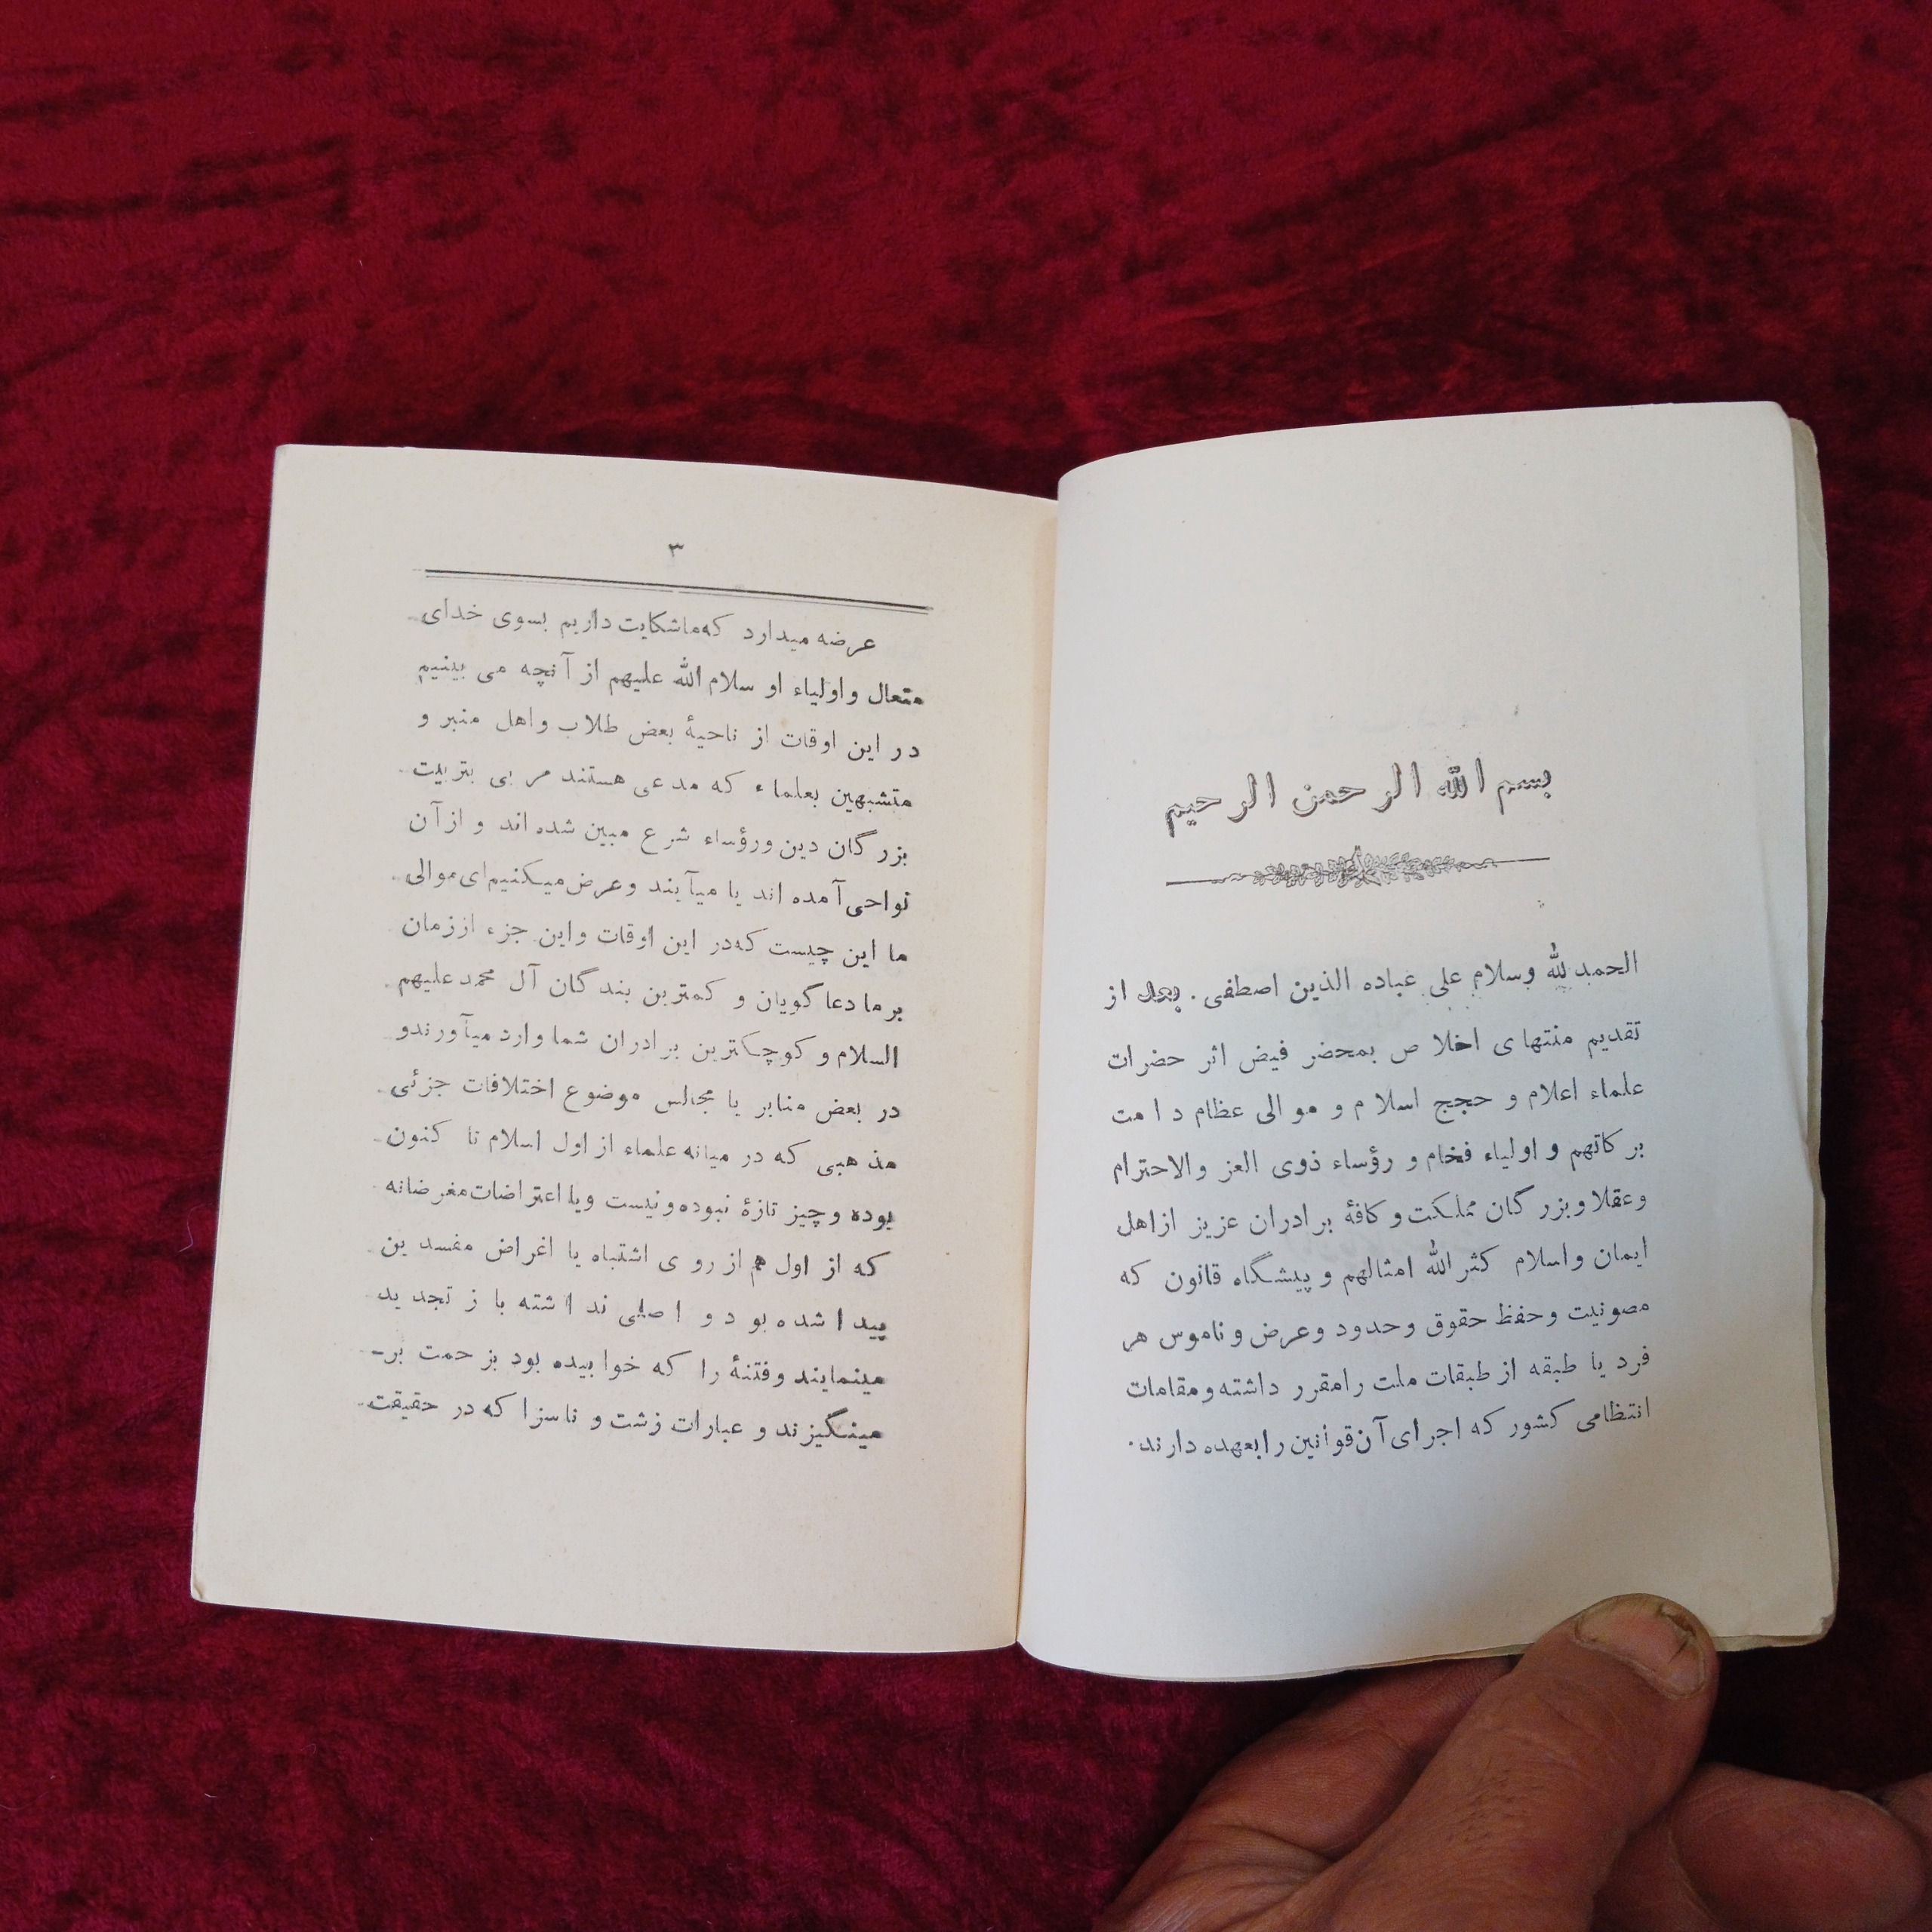 بسم الله الرحمن الرحیم
الحمد لله وسلام علی عباده الذین اصطفی. بعد از
تقدیم منتهای اخلاص بمحضر فیض اثر حضرات
علماء اعلام و حجج اسلام و موالی عظام دامت
برکاتهم و اولیاء فخام و رؤساء ذوی العز والاحترام
وعقلا وبزرگان مملکت و کافهٔ برادران عزیز از اهل
ایمان واسلام کثر الله امثالهم و پیشگاه قانون که
مصونیت وحفظ حقوق وحدود وعرض و ناموس هر
فرد یا طبقه از طبقات ملت رامقرر داشته ومقامات
انتظامی کشور که اجرای آن قوانین را بعهده دارند.
۳
عرضه میدارد که ماشکایت داریم بسوی خدای
متعال و اولیاء او سلام الله علیهم از آنچه می بینیم
در این اوقات از ناحیهٔ بعض طلاب واهل منبر و
متشبهین بعلماء که مدعی هستند مربی بتربیت
بزرگان دین ورؤساء شرع مبین شده اند و از آن
نواحی آمده اند یا میآیند وعرض میکنیم ای موالی
ما این چیست که در این اوقات واین جزء از زمان
بر ما دعا گویان و کمترین بندگان آل محمد علیهم
السلام و کوچکترین برادران شما وارد میآورند و
در بعض منابر یا مجالس موضوع اختلافات جزئی
مذهبی که در میانه علماء از اول اسلام تا کنون
بوده و چیز تازهٔ نبوده و نیست ویا اعتراضات مغرضانه
که از اول هم از روی اشتباه یا اغراض مفسدین
پیدا شده بود و اصلی نداشته باز تجدید
مینمایند و فتنهٔ را که خوابیده بود بزحمت بر-
مینگیزند و عبارات زشت و ناسزا که در حقیقت